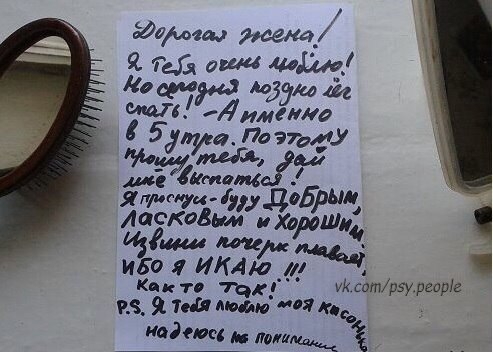 Дорогая жена!
Я тебя очень люблю!
Но сегодня поздно лёг
спать! - А именно
в 5 утра. Поэтому
прошу тебя, дай
мне выспаться!
Я проснусь - буду ДОБРЫМ,
ЛАСКОВЫМ и ХОРОШИМ.
Извини почерк плавает,
ИБО Я ИКАЮ !!!
Как то так!
vk.com/psy.people
P.S. Я тебя люблю моя кисонька
надеюсь на понимание